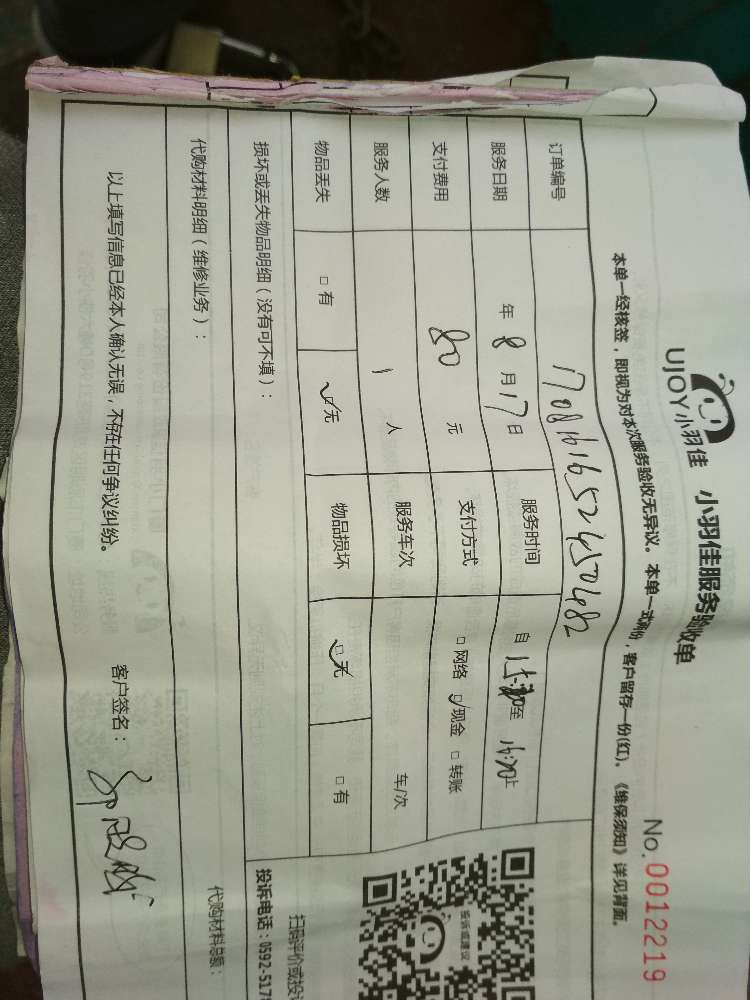 UJOY小羽佳 小羽佳服务验收单
No.0012219
本单一经核签，即视为对本次服务验收无异议。本单一式两份，客户留存一份(红)。《维保须知》详见背面。
订单编号 1708161652450482
服务日期 年 8 月 17 日 服务时间 自 15:30 至 16:30 止
支付费用 80 元 支付方式 □网络 ☑现金 □转账
服务人数 1 人 服务车次 车/次
物品丢失 □有 ☑无 物品损坏 ☑无 □有
损坏或丢失物品明细（没有可不填）：
投诉或建议
扫码评价或投
投诉电话：0592-517
代购材料明细（维修业务）： 代购材料总额：
以上填写信息已经本人确认无误，不存在任何争议纠纷。 客户签名：